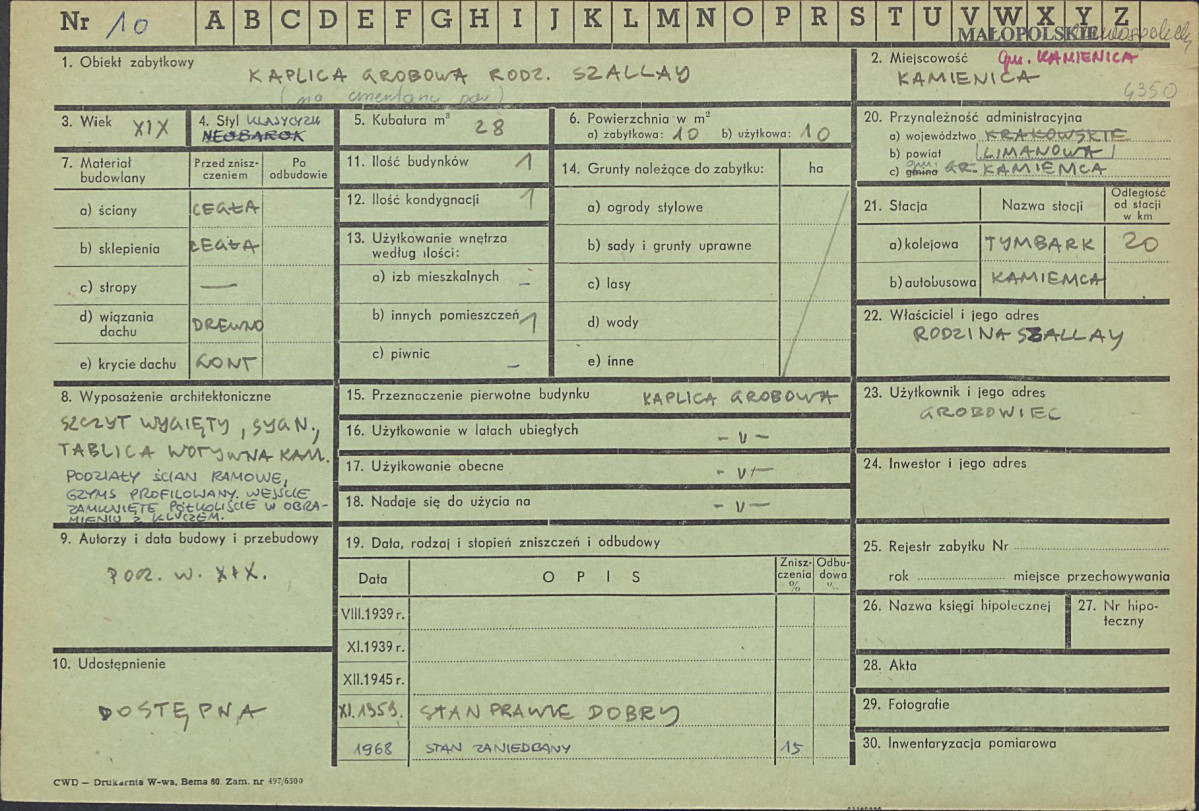 Nr 10 A B C D E F G H I J K L M N O P R S T U V W X Y Z
MAŁOPOLSKIE
1. Obiekt zabytkowy
KAPLICA GROBOWA RODZ. SZALLAY
(na cmentarzu par)
2. Miejscowość gm. KAMIENICA
KAMIENICA
6350
3. Wiek XIX
4. Styl KLASYCYZM
NEOBAROK
5. Kubatura m³ 28
6. Powierzchnia w m²
a) zabytkowa: 10 b) użytkowa: 10
7. Materiał budowlany
Przed zniszczeniem
Po odbudowie
a) ściany CEGŁA
b) sklepienia CEGŁA
c) stropy —
d) wiązania dachu DREWNO
e) krycie dachu GONT
8. Wyposażenie architektoniczne
SZCZYT WYGIĘTY, SYGN.,
TABLICA WOTYWNA KAM.
PODZIAŁY ŚCIAN RAMOWE,
GZYMS PROFILOWANY. WEJŚCIE
ZAMKNIĘTE PÓŁKOLIŚCIE W OBRA-
MIENIU Z KLUCZEM.
9. Autorzy i data budowy i przebudowy
POCZ. W. XIX.
10. Udostępnienie
DOSTĘPNA
11. Ilość budynków 1
12. Ilość kondygnacji 1
13. Użytkowanie wnętrza
według ilości:
a) izb mieszkalnych -
b) innych pomieszczeń 1
c) piwnic -
14. Grunty należące do zabytku: ha
a) ogrody stylowe
b) sady i grunty uprawne
c) lasy
d) wody
e) inne
15. Przeznaczenie pierwotne budynku KAPLICA GROBOWA
16. Użytkowanie w latach ubiegłych - v -
17. Użytkowanie obecne - v -
18. Nadaje się do użycia na - v -
19. Data, rodzaj i stopień zniszczeń i odbudowy
Data OPIS Znisz-czenia % Odbu-dowa %
VIII.1939 r.
XI.1939 r.
XII.1945 r.
XI.1959. STAN PRAWIE DOBRY
1968 STAN ZANIEDBANY 15
20. Przynależność administracyjna
a) województwo KRAKOWSKIE
b) powiat LIMANOWA
c) gmina GR. KAMIENICA
21. Stacja Nazwa stacji Odległość od stacji w km
a) kolejowa TYMBARK 20
b) autobusowa KAMIENICA
22. Właściciel i jego adres
RODZINA SZALLAY
23. Użytkownik i jego adres
GROBOWIEC
24. Inwestor i jego adres
25. Rejestr zabytku Nr
rok miejsce przechowywania
26. Nazwa księgi hipotecznej
27. Nr hipo-
teczny
28. Akta
29. Fotografie
30. Inwentaryzacja pomiarowa
CWD — Drukarnia W-wa, Bema 60. Zam. nr 497/6500